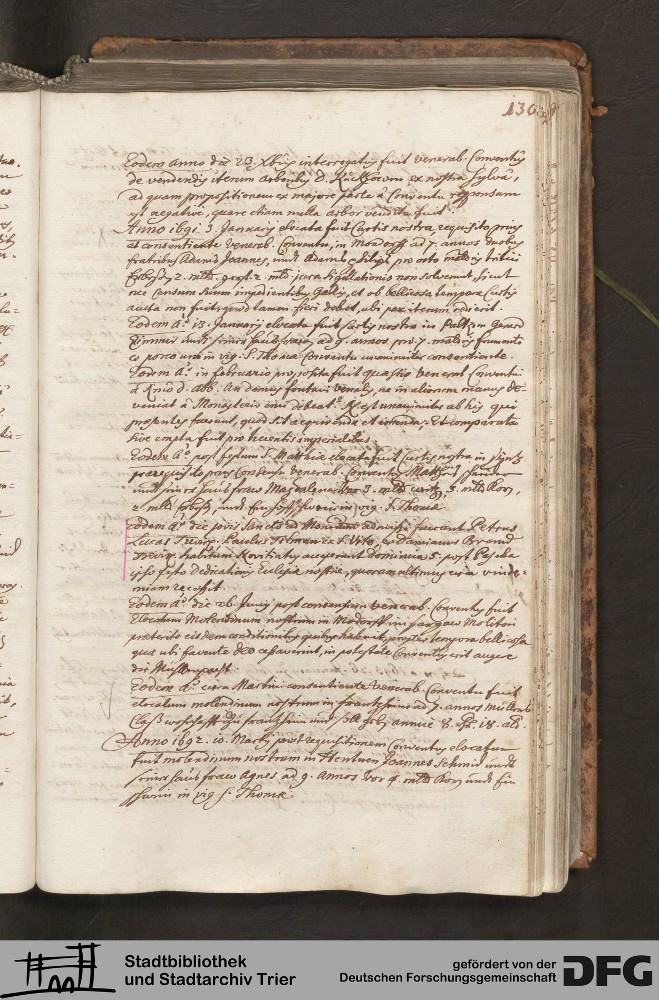 130
Eodem anno die 23. Xbris interrogatus fuit venerab. Conventus
de vendendis iterum arboribus D. ex nostra sylva,
ad quam propositionem ex majore parte à Conventu responsum
est negative, quare etiam nulla arbor vendita fuit.
Anno 1691. 3. Januarij elocata fuit Curtis nostra, requisito prius
et consentiente venerab. Conventu, in Mondorff ad 7. annos duobus
fratribus Adami Joannes, undt Adami Philips pro octo maldris tritici
Erbs 2. mld. gerst. 2. mld. jura sigillationis non solverunt, sicut
nec censum suum impedientibus Gallis, et ob bellicosa tempora Curtis
aucta non fuit, quod tamen fieri debet, ubi pax iterum redierit.
Eodem Ao. 13. Januarij elocata fuit curtis nostra in Paltzem Gerard
Zimmer undt seiner hausfrawen ad 9. annos pro 7. maldris frumenti
et porco uno in vig. S. Thomae Conventu unanimiter consentiente.
Eodem Ao. in februario proposita fuit quaestio venerab. Conventui
à R.mo D. abb. An domus fontani venalis, ne in alienam manus de-
veniat à Monasterio emi debeat? Rx. est unanimiter ab his qui
praesentes fuerunt, quod sit acquirenda et emenda. Et comparata
sive empta fuit pro ducentis imperialibus.
Eodem Ao. post festum S. Matthiae elocata fuit curtis nostra in
praerequisito prius consensu venerab. Conventus
undt seiner haus fraw Magdalena vor 3. mldr 5. mldr Korn,
2. mldr Erbs, undt Ein in vig. S. Thomae.
Eodem Ao. die Jovis Sancto ad Monasterium admissi fuerunt Petrus
Lucas Trevir. Paulus ex S. Vito, et Damianus Brandt
Trevir. habitum Novitiatus acceperunt Dominica 5. post Pascha
ipso festo Dedicationis Ecclesiae nostrae, quorum ultimus circa vinde-
miam recessit.
Eodem Ao. die 26. Junij post consensum venerab. Conventus fuit
elocatum Molendinum nostrum in Mondorff Molitori
praeterito eisdem conditionibus quibus habuit, propter tempora bellicosa
quae ubi favente DEO cessaverint, in potestate Conventus erit augere
den Mullenpacht.
Eodem Ao. circa Martini consentiente venerab. Conventu fuit
elocatum molendinum nostrum in ad 7. annos
wohnhafft zu undt soll geben annue 8. 18. alb.
Anno 1692. 10. Martij post requisitionem Conventus elocatum
fuit molendinum nostrum in Hentern Joannes Schmid undt
seiner haus fraw Agnes ad 9. Annos vor 4. mldr Korn undt Ein
in vig. S. Thomae.
Stadtbibliothek
und Stadtarchiv Trier
gefördert von der
Deutschen Forschungsgemeinschaft
DFG